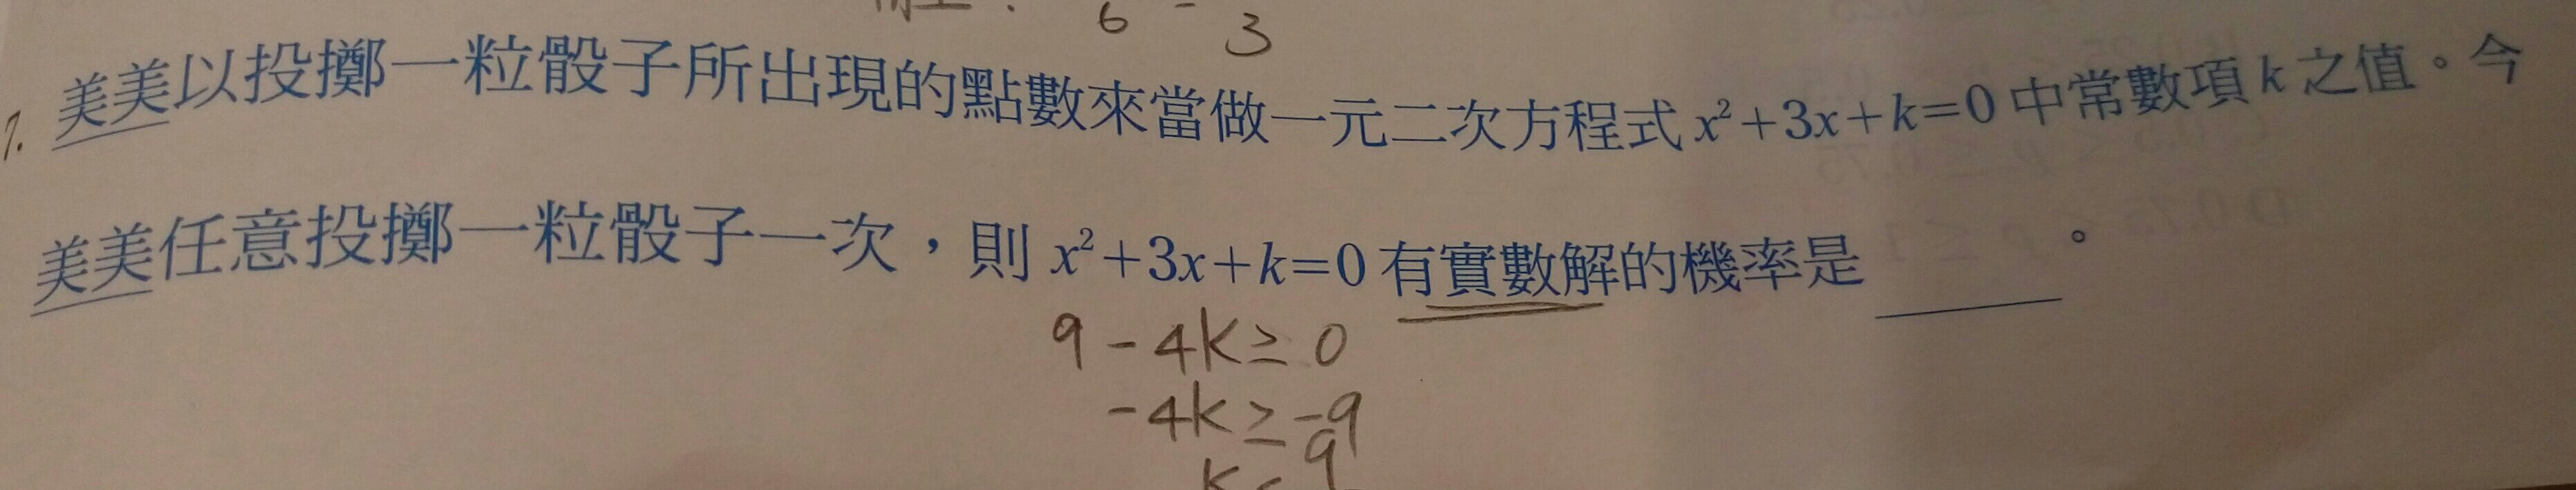 6 - 3
1. 美美以投擲一粒骰子所出現的點數來當做一元二次方程式 x²+3x+k=0 中常數項 k 之值。今
美美任意投擲一粒骰子一次，則 x²+3x+k=0 有實數解的機率是______。
9 - 4k ≥ 0
-4k ≥ -9
k 9